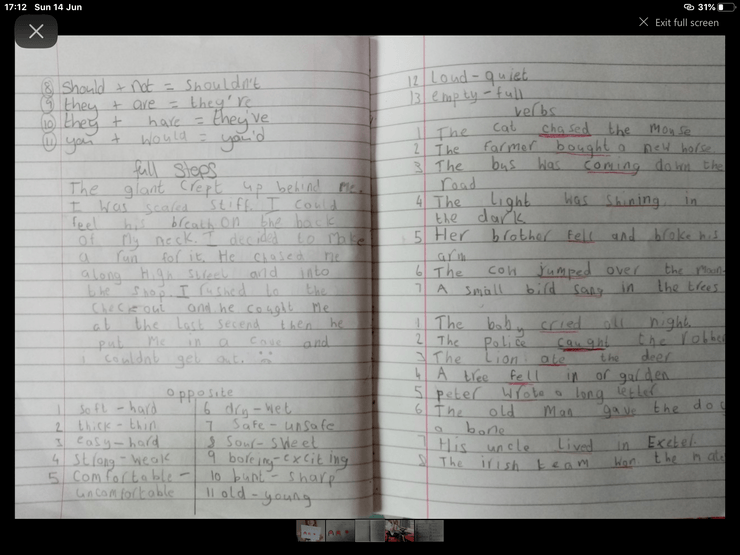 17:12 Sun 14 Jun
31%
Exit full screen
8 Should + not = Shouldn't
9 they + are = they're
10 they + have = they've
11 you + would = you'd
full Stops
The giant crept up behind me.
I was scared stiff. I could
feel his breath on the back
of my neck. I decided to make
a run for it. He chased me
along High street and into
the shop. I rushed to the
checkeout and he cought me
at the last second then he
put me in a cave and
i couldnt get out.
opposite
1 Soft - hard
2 thick - thin
3 easy - hard
4 Strong - weak
5 Comfortable -
uncomfortable
6 dry - wet
7 Safe - unsafe
8 Sour - Sweet
9 boreing - exciting
10 bunt - sharp
11 old - young
12 Loud - quiet
13 empty - full
verbs
1 The cat chased the mouse
2 The farmer bought a new horse
3 The bus was coming down the
road
4 The light was shining in
the dark
5 Her brother fell and broke his
arm
6 The cow jumped over the
7 A small bird sang in the trees
1 The baby cried all night
2 The police caught the
3 The Lion ate the deer
4 A tree fell in or garden
5 peter wrote a long letter
6 The old man gave the dog
a bone
7 His uncle lived in
8 The irish team won the